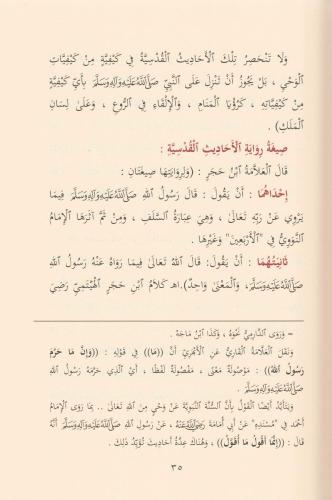 وَلَا تَنْحَصِرُ تِلْكَ الْأَحَادِيثُ الْقُدْسِيَّةُ فِي كَيْفِيَّةٍ مِنْ كَيْفِيَّاتِ
الْوَحْيِ ، بَلْ يَجُوزُ أَنْ تَنْزِلَ عَلَى النَّبِيِّ صَلَّى اللَّهُ عَلَيْهِ وَآلِهِ وَسَلَّمَ بِأَيِّ كَيْفِيَّةٍ
مِنْ كَيْفِيَّاتِهِ ، كَرُؤْيَا الْمَنَامِ ، وَالْإِلْقَاءِ فِي الرُّوعِ ، وَعَلَى لِسَانِ
الْمَلَكِ) .
صِيغَةُ رِوَايَةِ الْأَحَادِيثِ الْقُدْسِيَّةِ :
قَالَ الْعَلَّامَةُ ابْنُ حَجَرٍ : (وَلِرِوَايَتِهَا صِيغَتَانِ :
إِحْدَاهُمَا : أَنْ يَقُولَ : قَالَ رَسُولُ اللَّهِ صَلَّى اللَّهُ عَلَيْهِ وَآلِهِ وَسَلَّمَ فِيمَا
يَرْوِي عَنْ رَبِّهِ تَعَالَى ، وَهِيَ عِبَارَةُ السَّلَفِ ، وَمِنْ ثَمَّ آثَرَهَا الْإِمَامُ
النَّوَوِيُّ فِي "الْأَرْبَعِينَ" وَغَيْرِهَا .
ثَانِيَتُهُمَا : أَنْ يَقُولَ: قَالَ اللَّهُ تَعَالَى فِيمَا رَوَاهُ عَنْهُ رَسُولُ اللَّهِ
صَلَّى اللَّهُ عَلَيْهِ وَآلِهِ وَسَلَّمَ، وَالْمَعْنَى وَاحِدٌ). اهـ كَلَامُ ابْنِ حَجَرٍ الْهَيْتَمِيِّ رَضِيَ
= وَرَوَى الدَّارِمِيُّ نَحْوَهُ ، وَكَذَا ابْنُ مَاجَهْ .
وَنَقَلَ الْعَلَّامَةُ الْقَارِيُّ عَنِ الْأَبْهَرِيِّ أَنَّ ((مَا)) فِي قَوْلِهِ : ((وَإِنَّ مَا حَرَّمَ
رَسُولُ اللَّهِ)) : مَوْصُولَةٌ مَعْنًى ، مَفْصُولَةٌ لَفْظًا ، أَيِ الَّذِي حَرَّمَهُ رَسُولُ اللَّهِ
صَلَّى اللَّهُ عَلَيْهِ وَآلِهِ وَسَلَّمَ .
وَيَتَأَيَّدُ أَيْضًا الْقَوْلُ بِأَنَّ السُّنَّةَ النَّبَوِيَّةَ عَنْ وَحْيٍ مِنَ اللَّهِ تَعَالَى .. بِمَا رَوَى الْإِمَامُ
أَحْمَدُ فِي "مُسْنَدِهِ" عَنْ أَبِي أُمَامَةَ رَضِيَ اللَّهُ عَنْهُ ، عَنْ رَسُولِ اللَّهِ صَلَّى اللَّهُ عَلَيْهِ وَآلِهِ وَسَلَّمَ أَنَّهُ
قَالَ : ((إِنَّمَا أَقُولُ مَا أُقَوَّلُ)) ، وَهُنَاكَ عِدَّةُ أَحَادِيثَ تُؤَيِّدُ ذَلِكَ .
٣٥